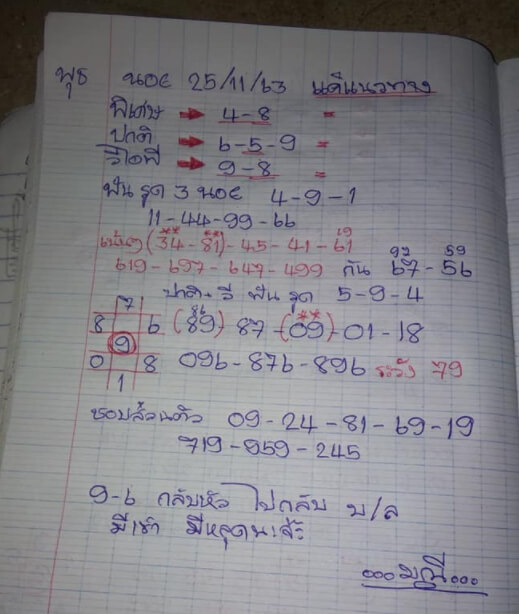 พุธ นอย 25/11/63 แค่แนวทาง
พิเศษ → 4-8 =
ปกติ → 6-5-9 =
วีไอพี → 9-8 =
ฟัน รูด 3 นอย 4-9-1
11-44-99-66
เน้นๆ (34-81)-45-41-61 19
619-697-647-499 กัน 67-56 97 59
ปกติ-วี ฟัน รูด 5-9-4
7
8 6 (89) 87-(09)-01-18 86
9
0 8 096-876-896 ระวัง 79
1
ชอบส่วนตัว 09-24-81-69-19
719-959-245
9-6 กลับหัว ไปกลับ บ/ล
มีเข้า มีหลุดนะจ๊ะ
...มณี...